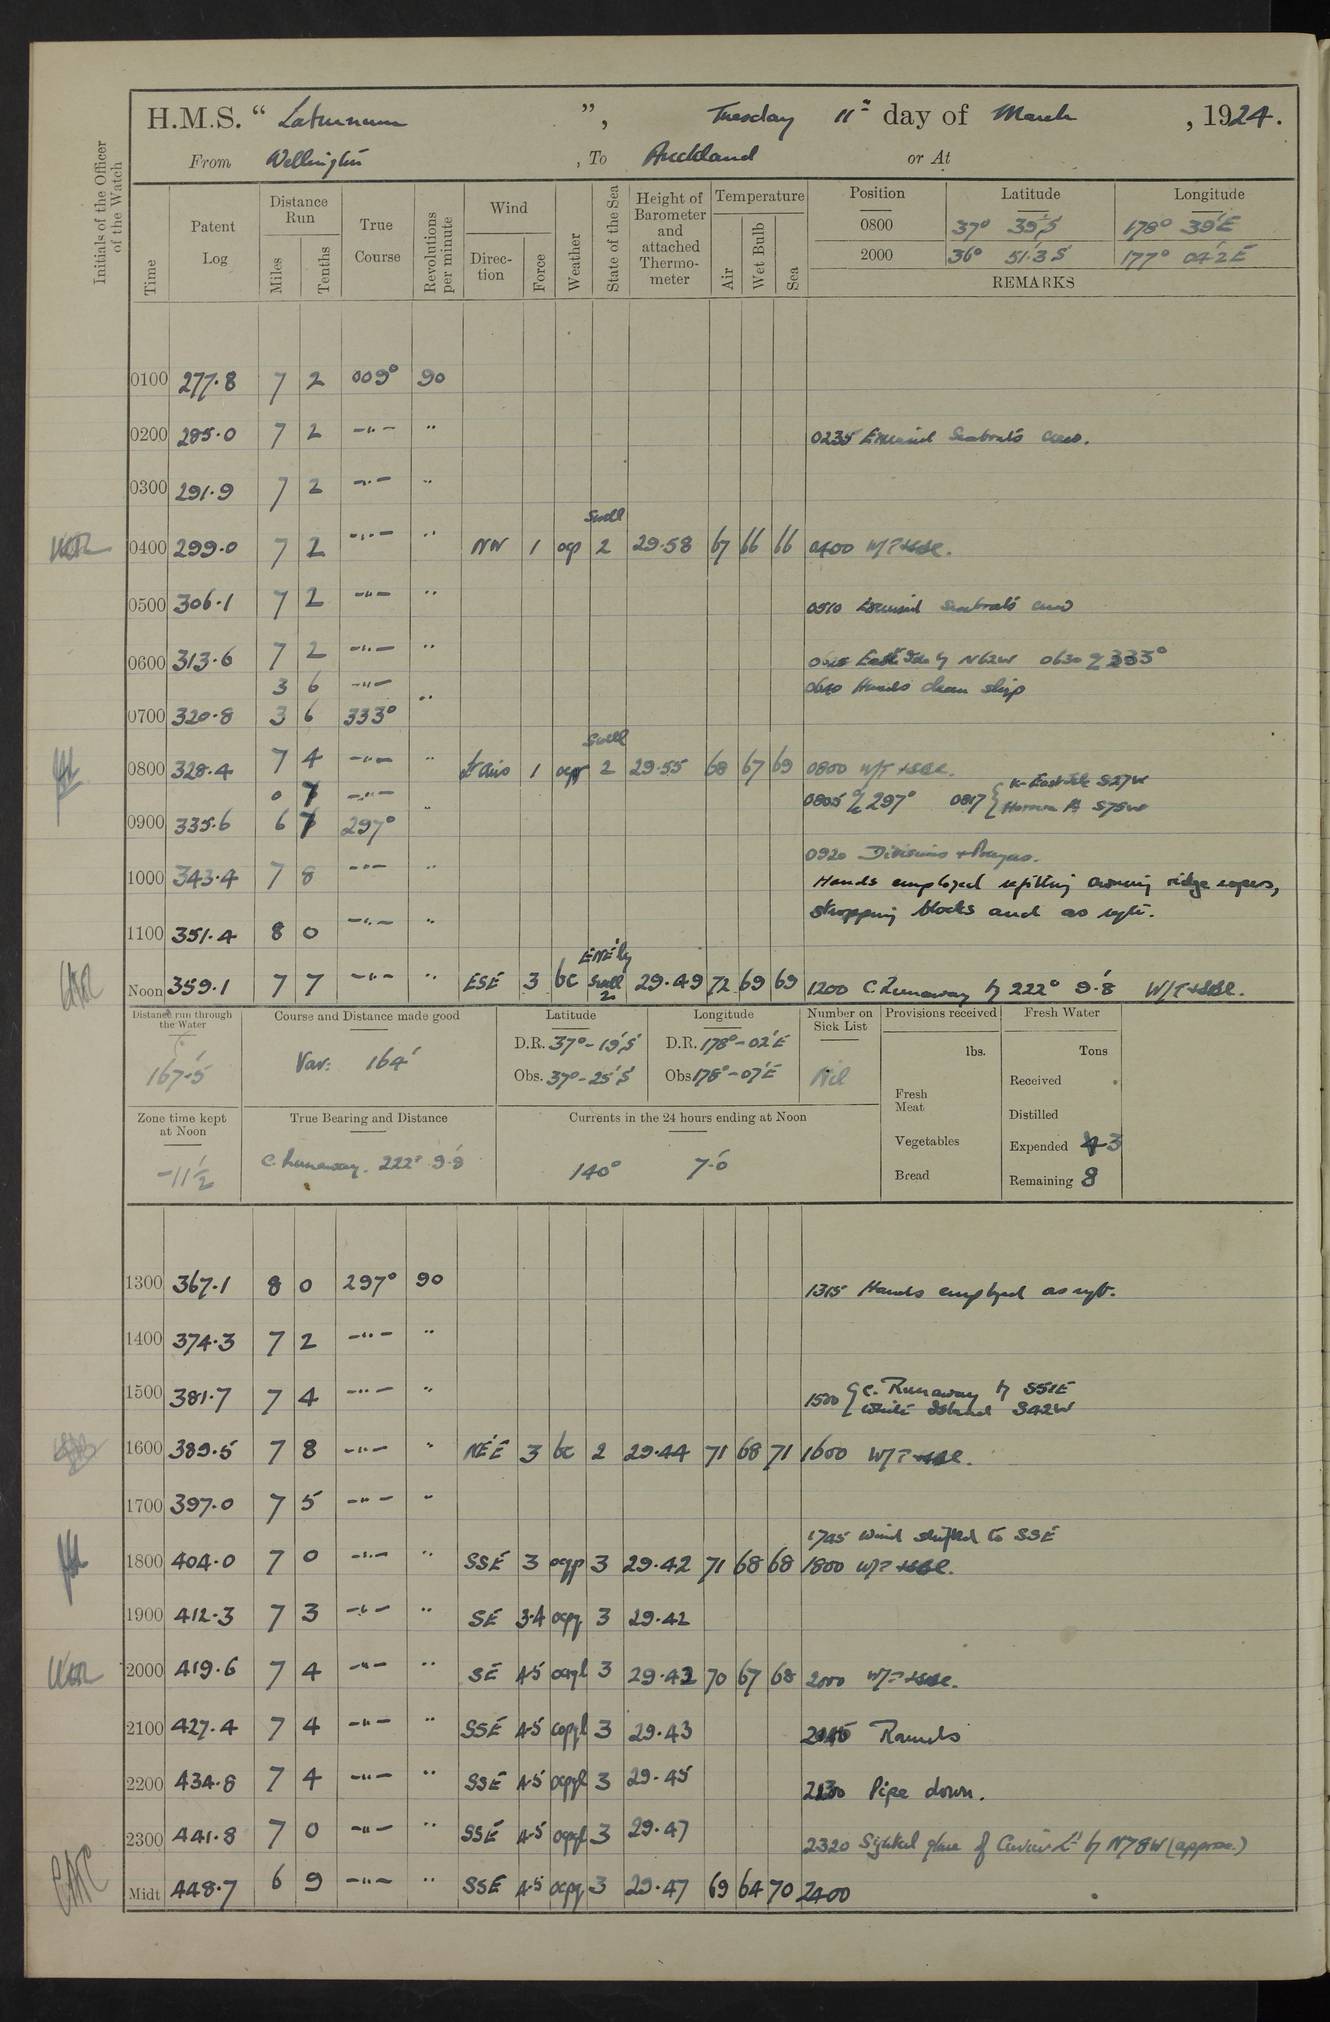 H.M.S. “ Laburnum ”, Tuesday 11th day of March, 1924.
From Wellington, To Auckland or At
Initials of the Officer of the Watch
Time Patent Log Distance Run Miles Tenths True Course Revolutions per minute Wind Direction Force Weather State of the Sea Height of Barometer and attached Thermometer Temperature Air Wet Bulb Sea
Position Latitude Longitude
0800 37° 39' S 178° 39' E
2000 36° 51.3 S 177° 04.2 E
REMARKS
0100 277.8 7 2 009° 90
0200 285.0 7 2 —"— " 0235 Exercised Seaboat's crew.
0300 291.9 7 2 —"— "
Swell
0400 299.0 7 2 —"— " NW 1 2 29.58 67 66 66 0400 W/T
0500 306.1 7 2 —"— " 0510 Exercised Seaboat's crew
0600 313.6 7 2 —"— " East Ide by N62W 0630 333°
3 6 —"— " Hands clean ship
0700 320.8 3 6 333°
Swell
0800 328.4 7 4 —"— " Lt airs 1 2 29.55 68 67 69 0800 W/T
0 7 —"— " 0805 297° 0817 { East Ide S27W
0900 335.6 6 7 297° S75W
0920 Divisions + Prayers.
1000 343.4 7 8 —"— " Hands employed refitting awning ridge ropes,
stropping blocks and as reqte.
1100 351.4 8 0 —"— "
ENE'ly
Noon 359.1 7 7 —"— " ESE 3 bc Swell 2 29.49 72 69 69 1200 C. Runaway by 222° 9.8' W/T
Distance run through the Water 167.5'
Course and Distance made good Var: 164'
Latitude Longitude
D.R. 37° - 19' S D.R. 178° - 02' E
Obs. 37° - 25' S Obs 178° - 07' E
Number on Sick List Nil
Provisions received lbs.
Fresh Meat
Vegetables
Bread
Fresh Water Tons
Received
Distilled
Expended 3
Remaining 8
Zone time kept at Noon -11½
True Bearing and Distance C. Runaway. 222° 9.8'
Currents in the 24 hours ending at Noon 140° 7.0'
1300 367.1 8 0 297° 90 1315 Hands employed as reqt.
1400 374.3 7 2 —"— "
1500 381.7 7 4 —"— " 1500 { C. Runaway by S51E
White Island S42W
1600 389.5 7 8 —"— " NE'E 3 bc 2 29.44 71 68 71 1600 W/T
1700 397.0 7 5 —"— "
1745 Wind shifted to SSE
1800 404.0 7 0 —"— " SSE 3 3 29.42 71 68 68 1800 W/T
1900 412.3 7 3 —"— " SE 3.4 ocpq 3 29.42
2000 419.6 7 4 —"— " SE 4.5 3 29.42 70 67 68 2000 W/T
2100 427.4 7 4 —"— " SSE 4.5 3 29.43 Rounds
2200 434.8 7 4 —"— " SSE 4.5 3 29.45 Pipe down.
2300 441.8 7 0 —"— " SSE 4.5 3 29.47 2320 Sighted glare of Cuvier Lt by N78W (approx.)
Midt 448.7 6 9 —"— " SSE 4.5 ocpq 3 29.47 69 64 70 2400